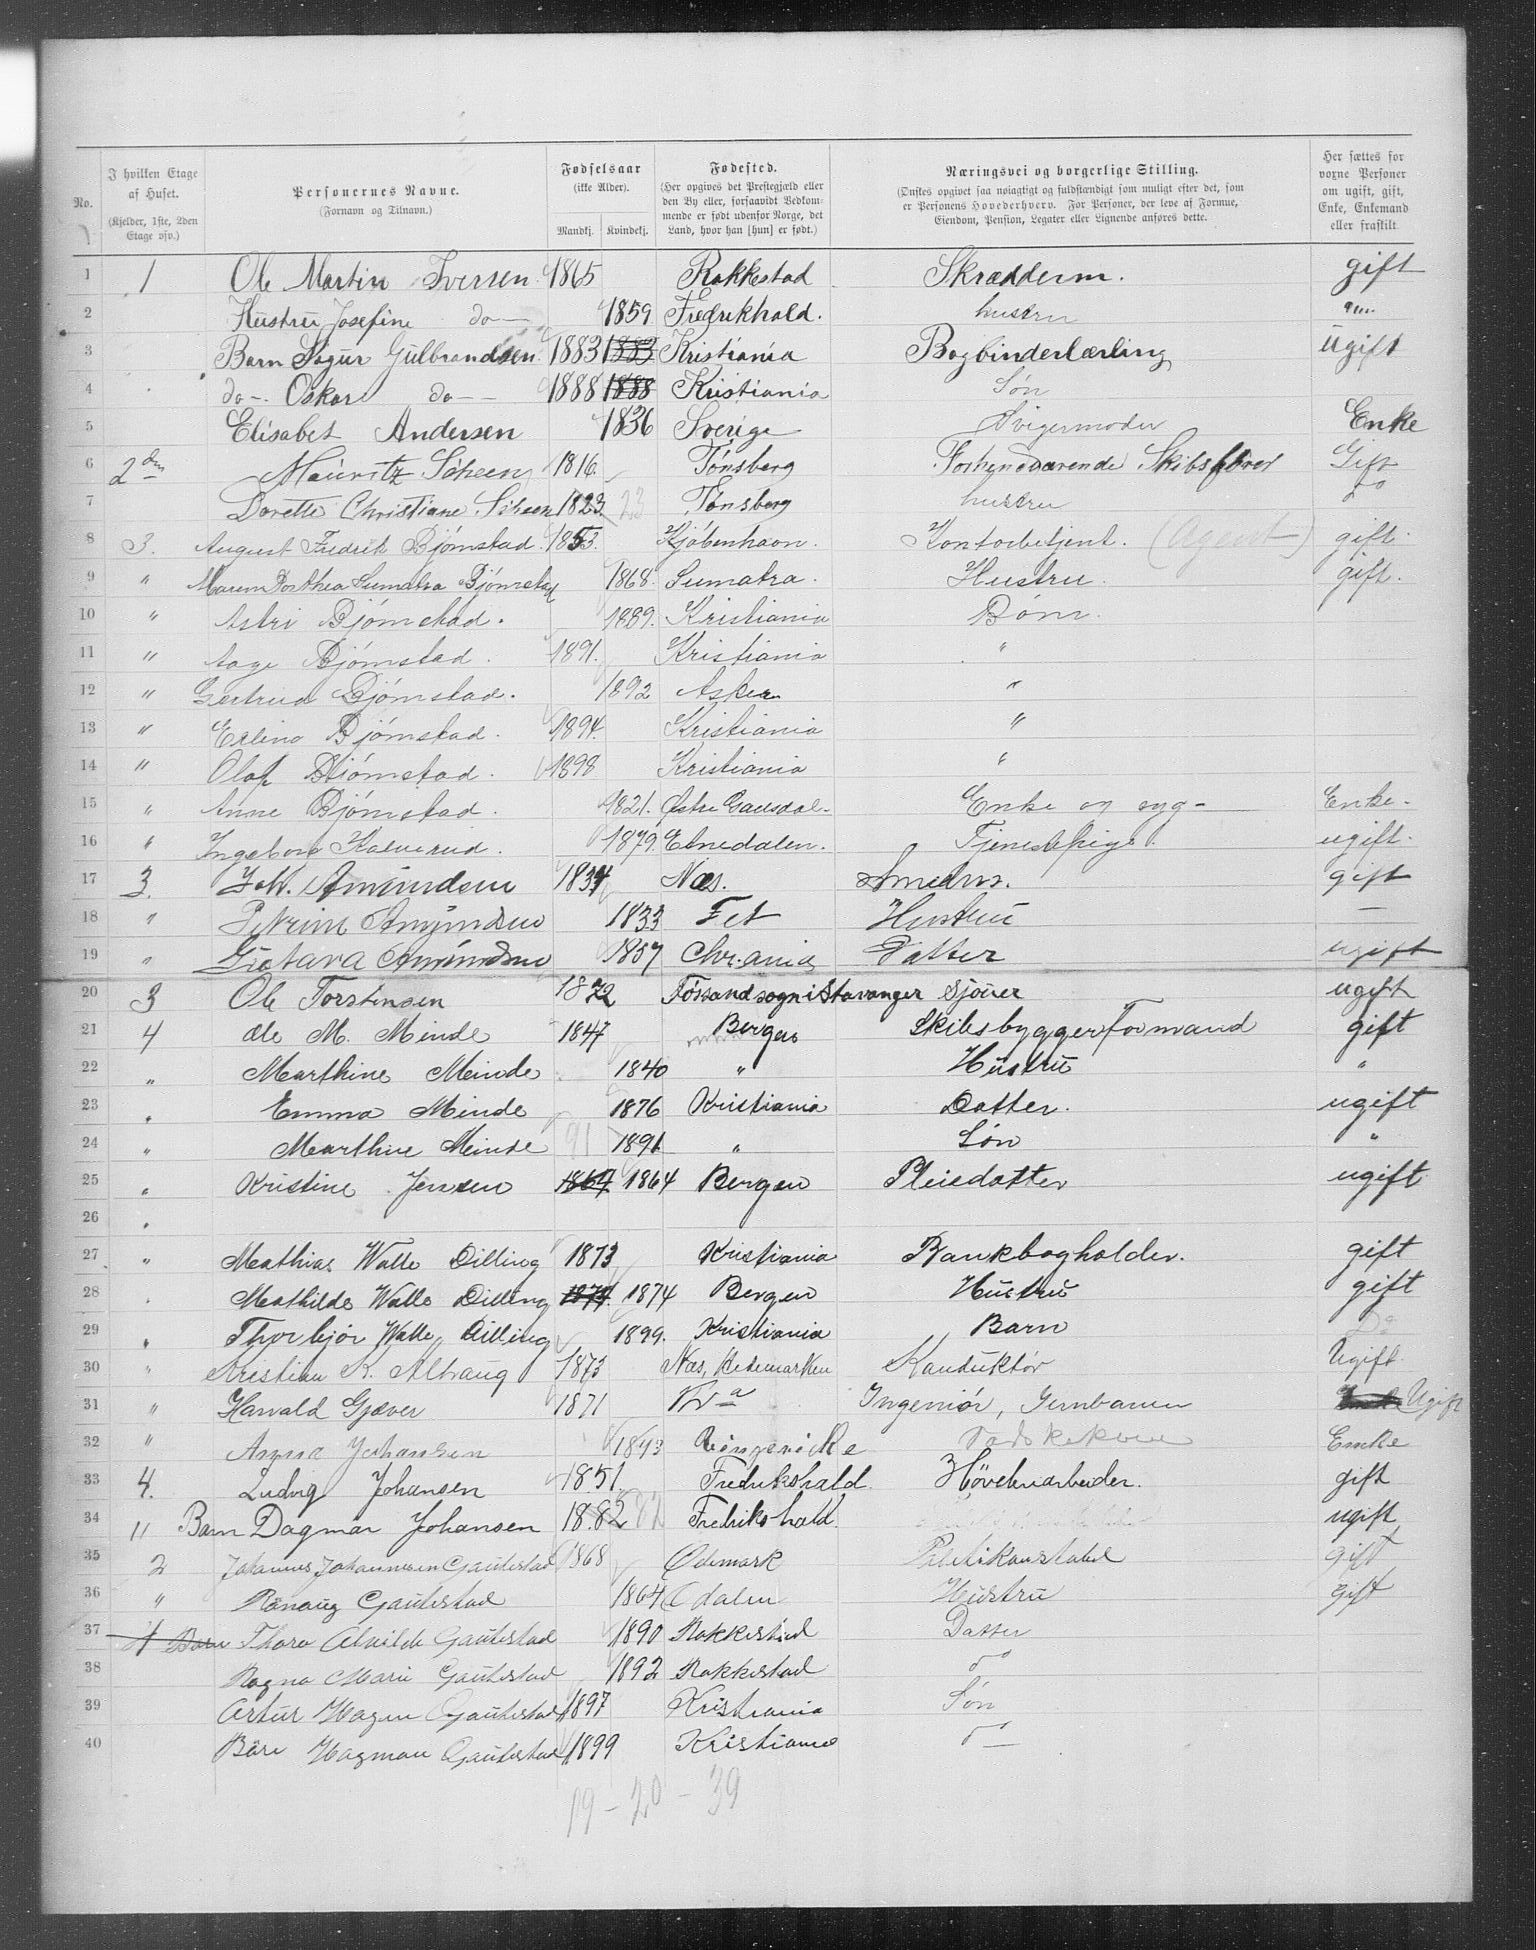 No. | I hvilken Etage af Huset. (Kjelder, 1ste, 2den Etage osv.) | Personernes Navne. (Fornavn og Tilnavn.) | Fødselsaar (ikke Alder). Mandkj. Kvindekj. | Fødested. (Her opgives det Prestegjæld eller den By eller, forsaavidt Vedkommende er født udenfor Norge, det Land, hvor han [hun] er født.) | Næringsvei og borgerlige Stilling. (Ønskes opgivet saa nøiagtigt og fuldstændigt som muligt efter det, som er Personens Hovederhverv. For Personer, der leve af Formue, Eiendom, Pension, Legater eller Lignende anføres dette. | Her sættes for voxne Personer om ugift, gift, Enke, Enkemand eller fraskilt
1 1 Ole Martin Iversen 1865 Rakkestad Skrædderm. gift
2 Hustru Josefine do 1859 Fredrikhald. hustru
3 Barn Sigur Gulbrandsen 1883 1883 Kristiania Bogbinderlærling ugift
4 do Oskar do 1888 1888 Kristiania Søn
5 Elisabet Andersen 1836 Sverige Svigermoder Enke
6 2den Mauritz Scheen 1816 Tønsberg Forhenværende Skibsfører Gift
7 Dorette Christiane Scheen 1823 23 Tønsberg hustru do
8 3. August Fredrik Bjørnstad. 1853. Kjøbenhavn. Kontorbetjent. (Agent) gift.
9 " Maren Dorthea Sumatra Bjørnstad 1868. Sumatra. Hustru. gift.
10 " Astri Bjørnstad. 1889. Kristiania Børn.
11 " Aage Bjørnstad. 1891. Kristiania "
12 " Gertrud Bjørnstad. 1892 Asker "
13 " Erling Bjørnstad. 1894. Kristiania "
14 " Olaf Bjørnstad. 1898 Kristiania "
15 " Anne Bjørnstad. 1821. Østre Gausdal. Enke og syg - Enke.
16 " Ingeborg Kalverud. 1879. Etnedalen. Tjenestepige. ugift.
17 3. Joh. Amundsen 1834 Næs. Smedm. gift
18 " Petrine Amundsen 1833 Fet Hustru —
19 " Gustava Amundsen 1857 Chr.ania Datter ugift
20 3 Ole Torstensen 1872 Fossand sogn i Stavanger Sjøuer ugift
21 4 Ole M. Minde 1847 Bergen Skibsbyggerformand gift
22 " Marthine Minde 1840 " Hustru "
23 " Emma Minde 1876 Kristiania Datter. ugift
24 " Marthin Minde 91 1891 " Søn "
25 " Kristine Jensen 1864 1864 Bergen Pleiedatter ugift
26 "
27 " Mathias Walle Dilling 1873 Kristiania Bankbogholder. gift
28 Mathilde Walle Dilling 1874 1874 Bergen Hustru gift
29 " Thorbjør Walle Dilling 1899. Kristiania Barn Do
30 " Kristian K. Alhaug 1873 Næs, Hedemarken Konduktør Ugift.
31 " Harvald Gjæver 1871 Ingeniør, Jernbanen Ugift
32 " Anna Johansen 1843 Ringerike Vadskekone Enke
33 4. Ludvig Johansen 1851 Fredrikshald Høvelmarbeider. gift
34 " Barn Dagmar Johansen 1882 82 Fredrikshald. ugift
35 2 Johannes Johannesen Gautestad 1868 Ødemark Politikonstabel gift
36 " Rønaug Gautestad 1864 Odalen Hustru gift
37 4 Barn Thora Alvilde Gautestad 1890 Rakkestad Datter
38 Ragna Marie Gautestad 1892 Rakkestad do
39 Artur Hagen Gautestad 1897 Kristiania Søn
40 Gautestad 1899 Kristiania do
19 - 20 - 39